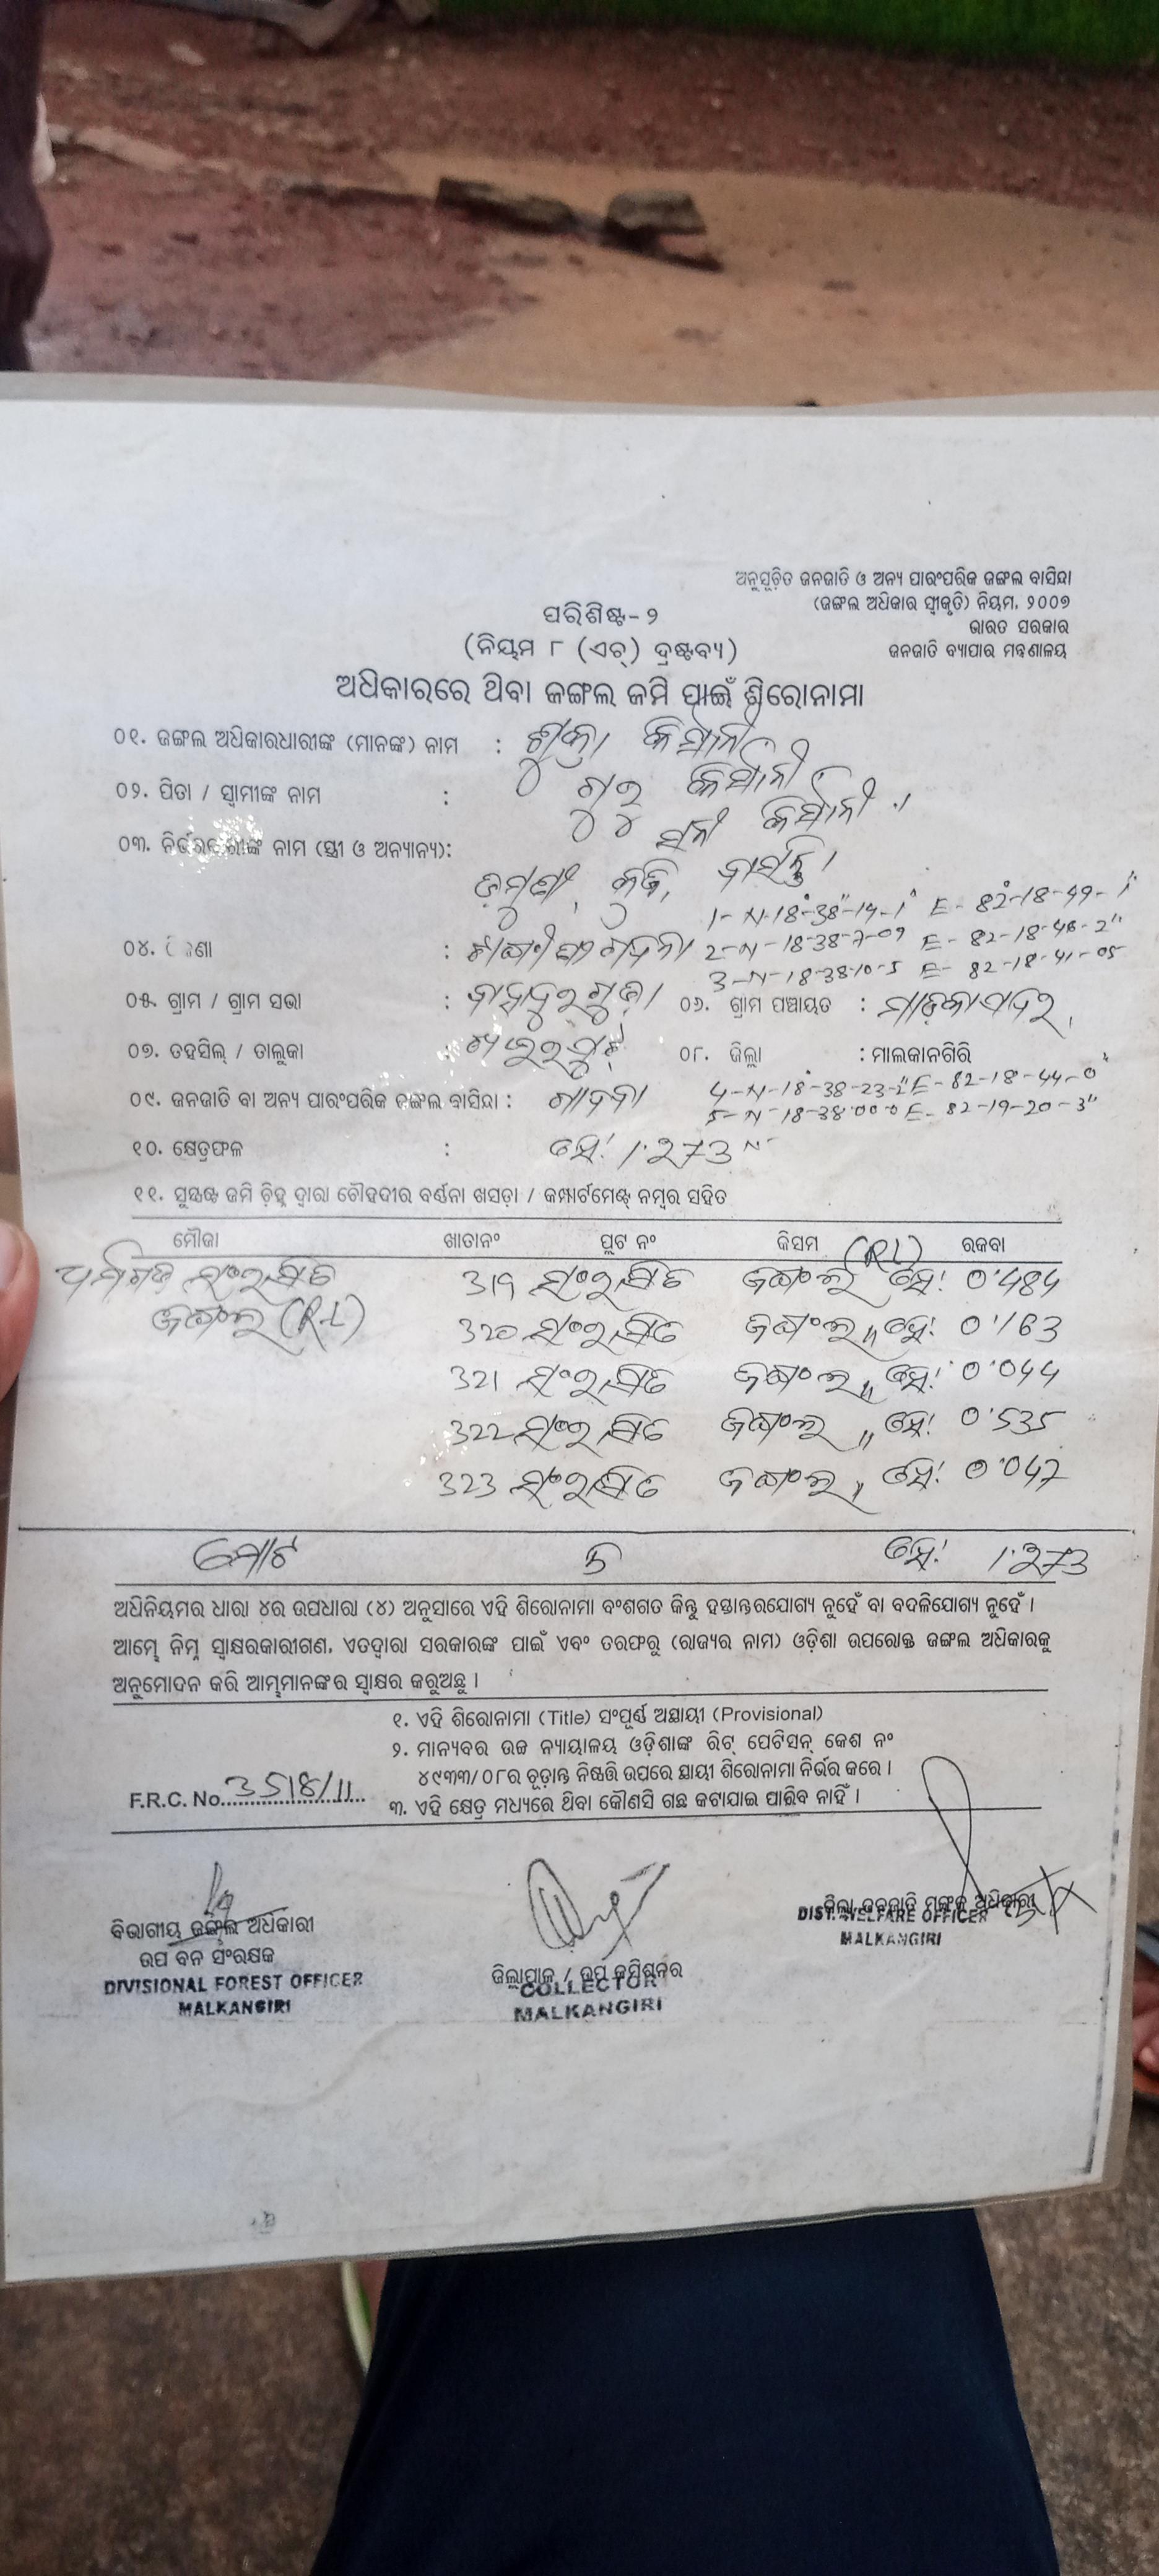 ଅନୁସୂଚିତ ଜନଜାତି ଓ ଅନ୍ୟ ପାରଂପରିକ ଜଙ୍ଗଲ ବାସିନ୍ଦା
(ଜଙ୍ଗଲ ଅଧିକାର ସ୍ୱୀକୃତି) ନିୟମ, ୨୦୦୭
ଭାରତ ସରକାର
ଜନଜାତି ବ୍ୟାପାର ମନ୍ତ୍ରଣାଳୟ
ପରିଶିଷ୍ଟ-୨
(ନିୟମ ୮ (ଏଚ୍) ଦ୍ରଷ୍ଟବ୍ୟ)
ଅଧିକାରରେ ଥିବା ଜଙ୍ଗଲ ଜମି ପାଇଁ ଶିରୋନାମା
୦୧. ଜଙ୍ଗଲ ଅଧିକାରଧାରୀଙ୍କ (ମାନଙ୍କ) ନାମ :
୦୨. ପିତା / ସ୍ୱାମୀଙ୍କ ନାମ :
୦୩. ନାମ (ସ୍ତ୍ରୀ ଓ ଅନ୍ୟାନ୍ୟ):
1-N-18-38-14-1 E-82-18-49-1
୦୪. :
2-N-18-38-7-09 E-82-18-46-2"
3-N-18-38-10-5 E-82-18-41-05
୦୫. ଗ୍ରାମ / ଗ୍ରାମ ସଭା : ୦୬. ଗ୍ରାମ ପଞ୍ଚାୟତ :
୦୭. ତହସିଲ୍ / ତାଲୁକା ୦୮. ଜିଲ୍ଲା : ମାଲକାନଗିରି
4-N-18-38-23-2"E-82-18-44-0
୦୯. ଜନଜାତି ବା ଅନ୍ୟ ପାରଂପରିକ ଜଙ୍ଗଲ ବାସିନ୍ଦା :
5-N-18-38-00-0 E-82-19-20-3"
୧୦. କ୍ଷେତ୍ରଫଳ : ହେ: 1.273
୧୧. ସୁସ୍ପଷ୍ଟ ଜମି ଚିହ୍ନ ଦ୍ୱାରା ଚୌହଦୀର ବର୍ଣ୍ଣନା ଖସଡ଼ା / କମ୍ପାର୍ଟମେଣ୍ଟ ନମ୍ବର ସହିତ
ମୌଜା ଖାତାନଂ ପ୍ଲଟ ନଂ କିସମ (RL) ରକବା
ସଂରକ୍ଷିତ 319 ସଂରକ୍ଷିତ ଜଙ୍ଗଲ ହେ: 0.484
ଜଙ୍ଗଲ (R.L) 320 ସଂରକ୍ଷିତ ଜଙ୍ଗଲ " ହେ: 0.163
321 ସଂରକ୍ଷିତ ଜଙ୍ଗଲ " ହେ: 0.044
322 ସଂରକ୍ଷିତ ଜଙ୍ଗଲ " ହେ: 0.535
323 ସଂରକ୍ଷିତ ଜଙ୍ଗଲ " ହେ: 0.047
ମୋଟ 5 ହେ: 1.273
ଅଧିନିୟମର ଧାରା ୪ର ଉପଧାରା (୪) ଅନୁସାରେ ଏହି ଶିରୋନାମା ବଂଶଗତ କିନ୍ତୁ ହସ୍ତାନ୍ତରଯୋଗ୍ୟ ନୁହେଁ ବା ବଦଳିଯୋଗ୍ୟ ନୁହେଁ ।
ଆମ୍ଭେ ନିମ୍ନ ସ୍ୱାକ୍ଷରକାରୀଗଣ, ଏତଦ୍ୱାରା ସରକାରଙ୍କ ପାଇଁ ଏବଂ ତରଫରୁ (ରାଜ୍ୟର ନାମ) ଓଡ଼ିଶା ଉପରୋକ୍ତ ଜଙ୍ଗଲ ଅଧିକାରକୁ
ଅନୁମୋଦନ କରି ଆମ୍ଭମାନଙ୍କର ସ୍ୱାକ୍ଷର କରୁଅଛୁ ।
୧. ଏହି ଶିରୋନାମା (Title) ସଂପୂର୍ଣ୍ଣ ଅସ୍ଥାୟୀ (Provisional)
୨. ମାନ୍ୟବର ଉଚ୍ଚ ନ୍ୟାୟାଳୟ ଓଡ଼ିଶାଙ୍କ ରିଟ୍ ପେଟିସନ୍ କେଶ ନଂ
୪୯୩୩/୦୮ର ଚୂଡ଼ାନ୍ତ ନିଷ୍ପତ୍ତି ଉପରେ ସ୍ଥାୟୀ ଶିରୋନାମା ନିର୍ଭର କରେ ।
F.R.C. No. 3518/11
୩. ଏହି କ୍ଷେତ୍ର ମଧ୍ୟରେ ଥିବା କୌଣସି ଗଛ କଟାଯାଇ ପାରିବ ନାହିଁ ।
ବିଭାଗୀୟ ଜଙ୍ଗଲ ଅଧିକାରୀ
ଉପ ବନ ସଂରକ୍ଷକ
DIVISIONAL FOREST OFFICER
MALKANGIRI
ଜିଲ୍ଲାପାଳ / ଉପ କମିଶନର
COLLECTOR
MALKANGIRI
ଜିଲ୍ଲା ଜନଜାତି ମଙ୍ଗଳ ଅଧିକାରୀ
DIST. WELFARE OFFICER
MALKANGIRI